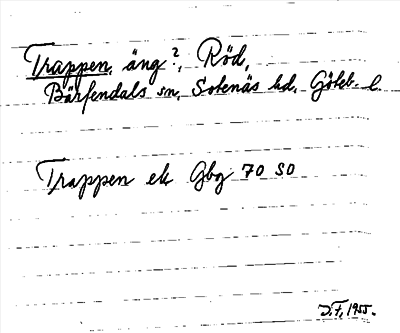 Trappen, äng?, Röd,
Bärfendals sn, Sotenäs hd, Göteb. l.
Trappen ek Gbg 70 SO
D.F, 1955.